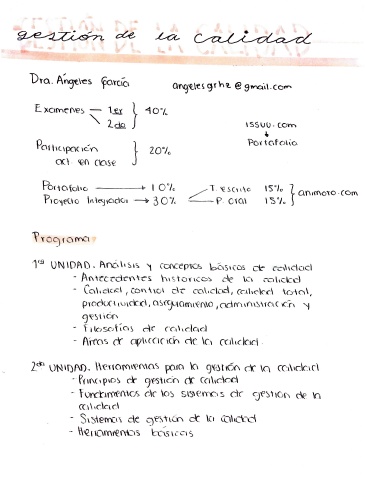 gestión de la calidad
Dra. Ángeles García angelesgrhz@gmail.com
Examenes 1er 2do 40%
issuu.com
Portafolio
Participación act en clase 20%
Portafolio 10%
Proyecto Integrador 30% T. escrito 15% P. oral 15% animoto.com
Programa
1ra UNIDAD. Análisis y conceptos básicos de calidad
- Antecedentes historicos de la calidad
- Calidad, control de calidad, calidad total,
productividad, aseguramiento, administración y
gestión
- Filosofías de calidad
- Areas de aplicación de la calidad
2da UNIDAD. Herramientas para la gestión de la calidad
- Principios de gestión de calidad
- Fundamentos de los sistemas de gestión de la
calidad
- Sistemas de gestión de la calidad
- Herramientas básicas